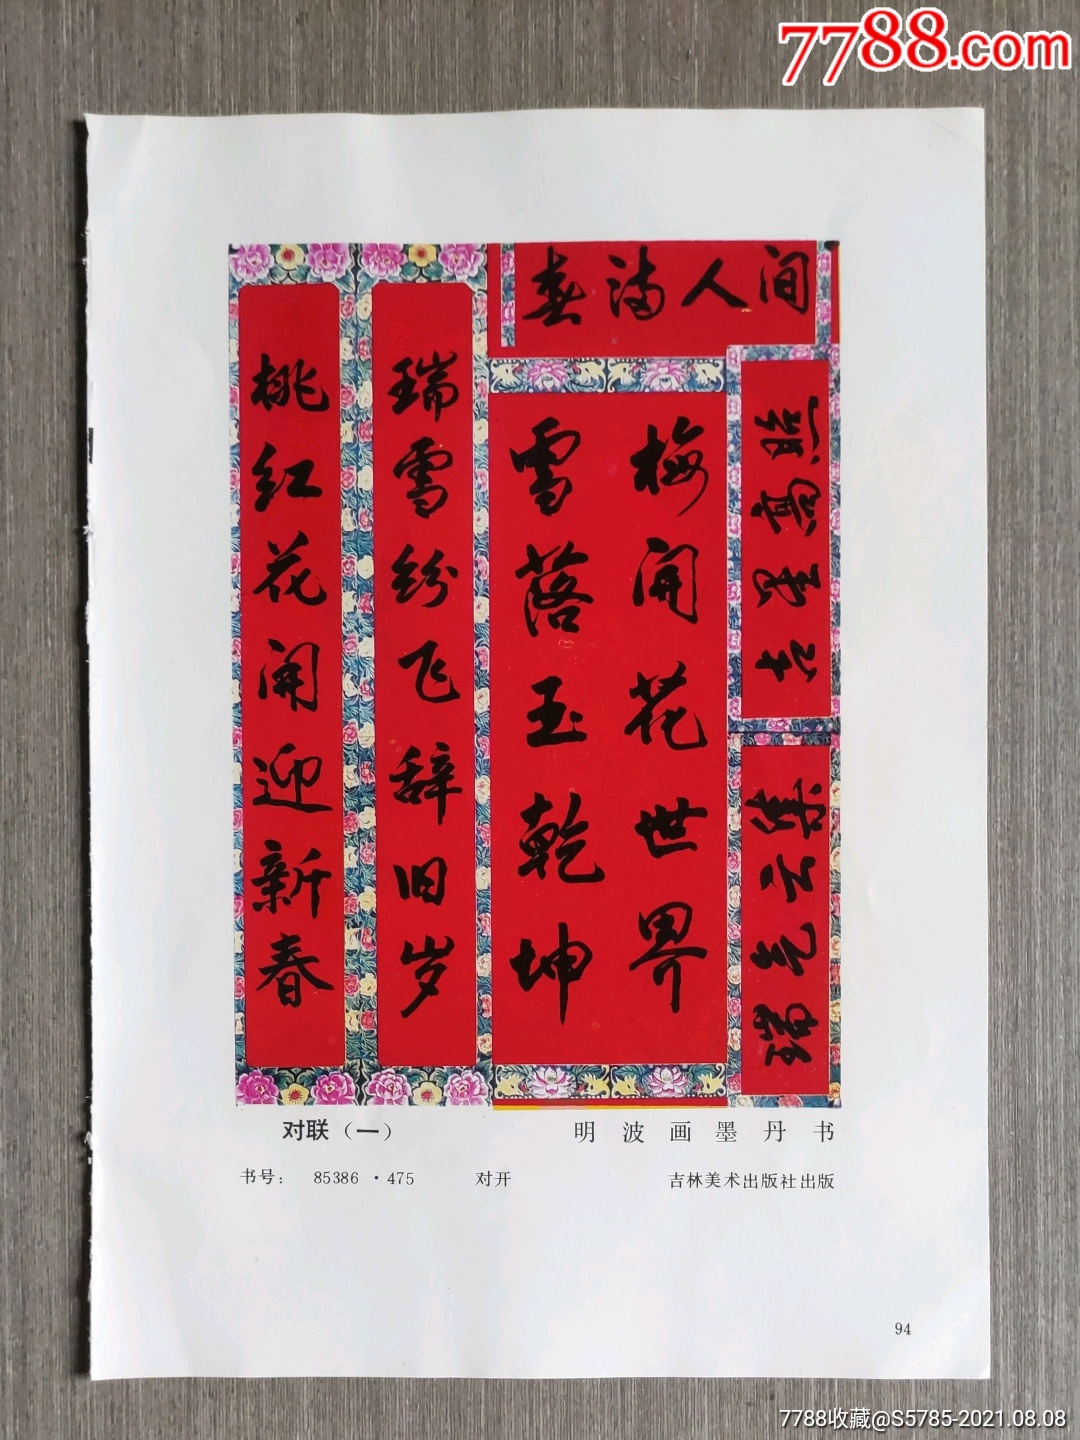 7788.com
春满人间
吉星高照
瑞气云集
梅开花世界
雪落玉乾坤
瑞雪纷飞辞旧岁
桃红花开迎新春
对联（一）
明波画墨丹书
书号： 85386·475 对开 吉林美术出版社出版
94
7788收藏@S5785-2021.08.08